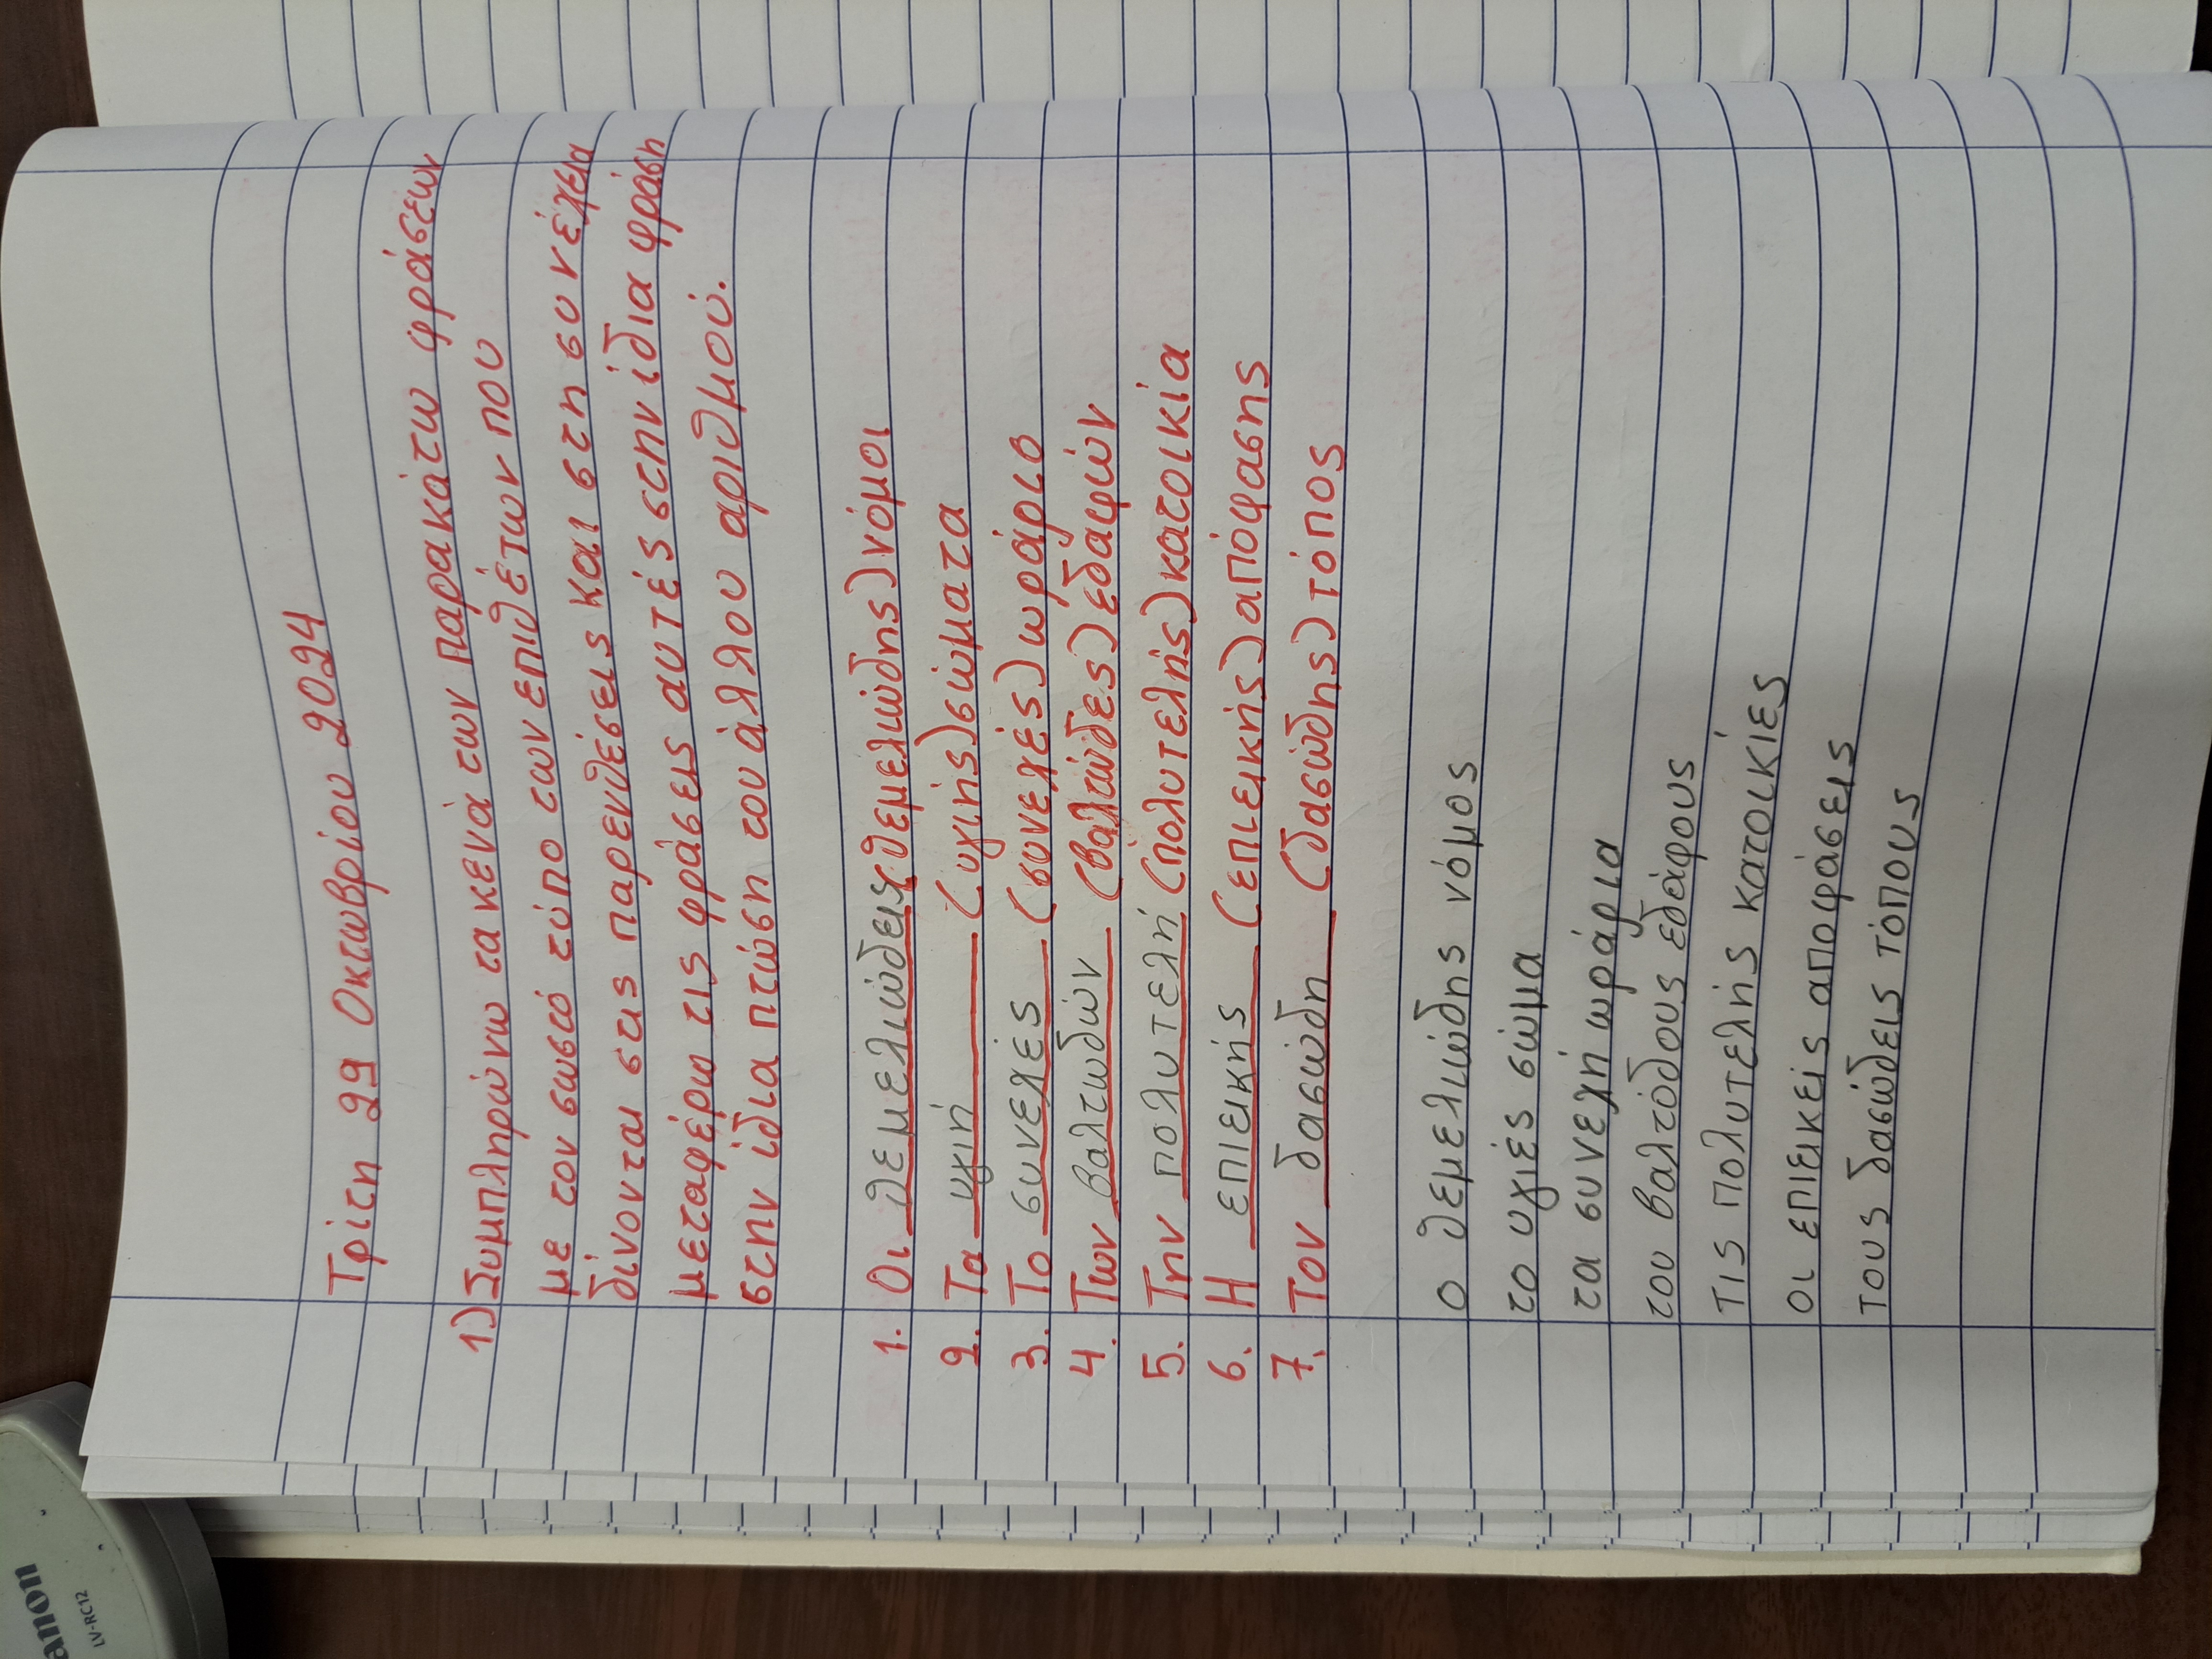 anon
LV-RC12
Τρίτη 29 Οκτωβρίου 2024
1) Συμπληρώνω τα κενά των παρακάτω φράσεων
με τον σωστό τύπο των επιθέτων που
δίνονται στις παρενθέσεις και στη συνέχεια
μεταφέρω τις φράσεις αυτές στην ίδια φράση
στην ίδια πτώση του άλλου αριθμού.
1. Οι θεμελιώδεις (θεμελιώδης) νόμοι
2. Τα υγιή (υγιής) σώματα
3. Το συνεχές (συνεχές) ωράριο
4. Των βαλτωδών (βαλτώδες) εδαφών
5. Την πολυτελή (πολυτελής) κατοικία
6. Η επιεικής (επιεικής) απόφασης
7. Τον δασώδη (δασώδης) τόπος
ο θεμελιώδης νόμος
το υγιές σώμα
τα συνεχή ωράρια
του βαλτόδους εδάφους
τις πολυτελής κατοικίες
οι επιεικείς αποφάσεις
τους δασώδεις τόπους